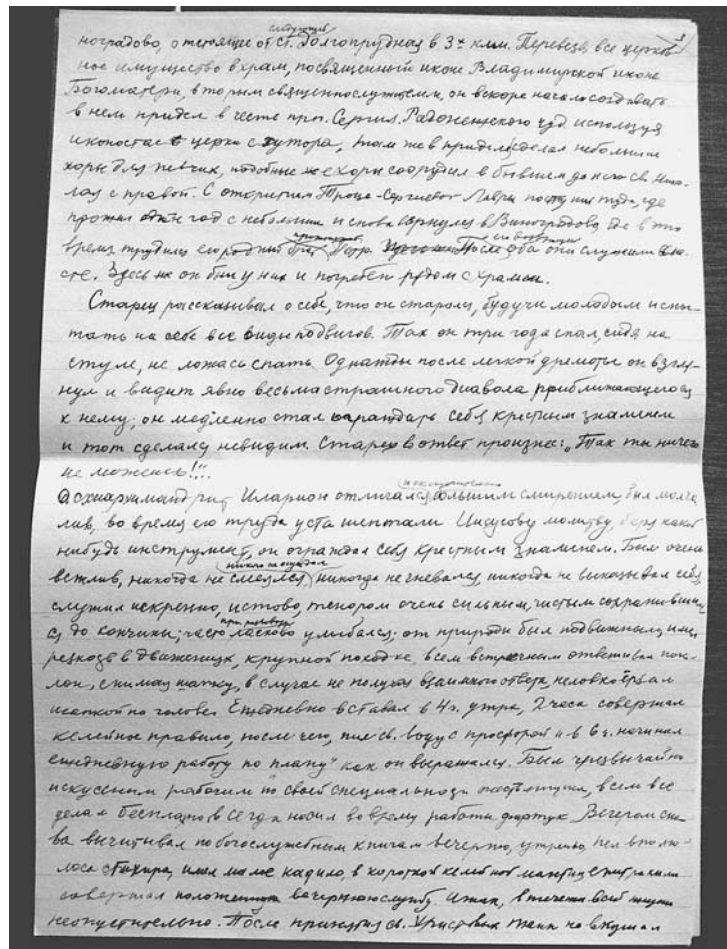 следующее
ноградово, отстоящее от ст. Долгопрудная в 3х клм. Перевезя все церков
ное имущество в храм, посвященный иконе Владимирской иконе
Богоматери, вторым священнослужителем, он вскоре начал создавать
в нем придел в честь прп. Сергия Радонежского чуд. используя
иконостас в церкви с хутора, там же в приделе сделал небольшие
хоры для певчих, подобные же хоры соорудил в бывшем до него св. Нико
лая с правой. С открытия Троице-Сергиевой Лавры поступил туда, где
прожил один год с небольшим и снова вернулся в Виноградово, где в это
время трудился его родной брат Петр. После оба они служили вме
сте. Здесь же он был у них и погребен рядом с храмом.
Старец рассказывал о себе, что он старался, будучи молодым испы-
тать на себе все виды подвигов. Так он три года спал, сидя на
стуле, не ложась спать. Однажды после легкой дремоты он взгля-
нул и видит явно весьма страшного диавола приближающегося
к нему; он медленно стал ограждать себя крестным знамением
и тот сделался невидим. Старец в ответ произнес: „Так ты ничего
не можешь!"..
О. схиархимандрит Иларион отличался большим смирением, был молча
лив, во время его труда уста шептали Иисусову молитву, беря какой
нибудь инструмент, он ограждал себя крестным знамением. Был очень
никого не осуждал
вежлив, никогда не смеялся, никогда не гневался, никогда не выказывал себя,
служил искренно, истово, тенором очень сильным, чистым сохранившим
при разговоре
ся до кончины; часто ласково улыбался; от природы был подвижным, имел
резкость в движениях, крупной походке, всем встречным отвешивал пок-
лон, снимая шапку, в случае не получая взаимного ответа, неловко ёрзал
шапкой по голове. Ежедневно вставал в 4 ч. утра, 2 часа совершал
келейное правило, после чего, пил св. воду с просфорой и в 6 ч. начинал
ежедневную работу по плану" как он выражался. Был чрезвычайно
искусным рабочим по своей специальности, всем все
делал бесплатно всегда носил во время работы фартук. Вечером сно
ва вычитывал по богослужебным книгам вечерню, утреню, пел вполго
лоса стихиры, имел малое кадило, в короткой келейной мантии, епитрахили
совершал положенную вечернюю службу. И так, в течении всей жизни
неопустительно. После принятия св. Христовых Таин не вкушал